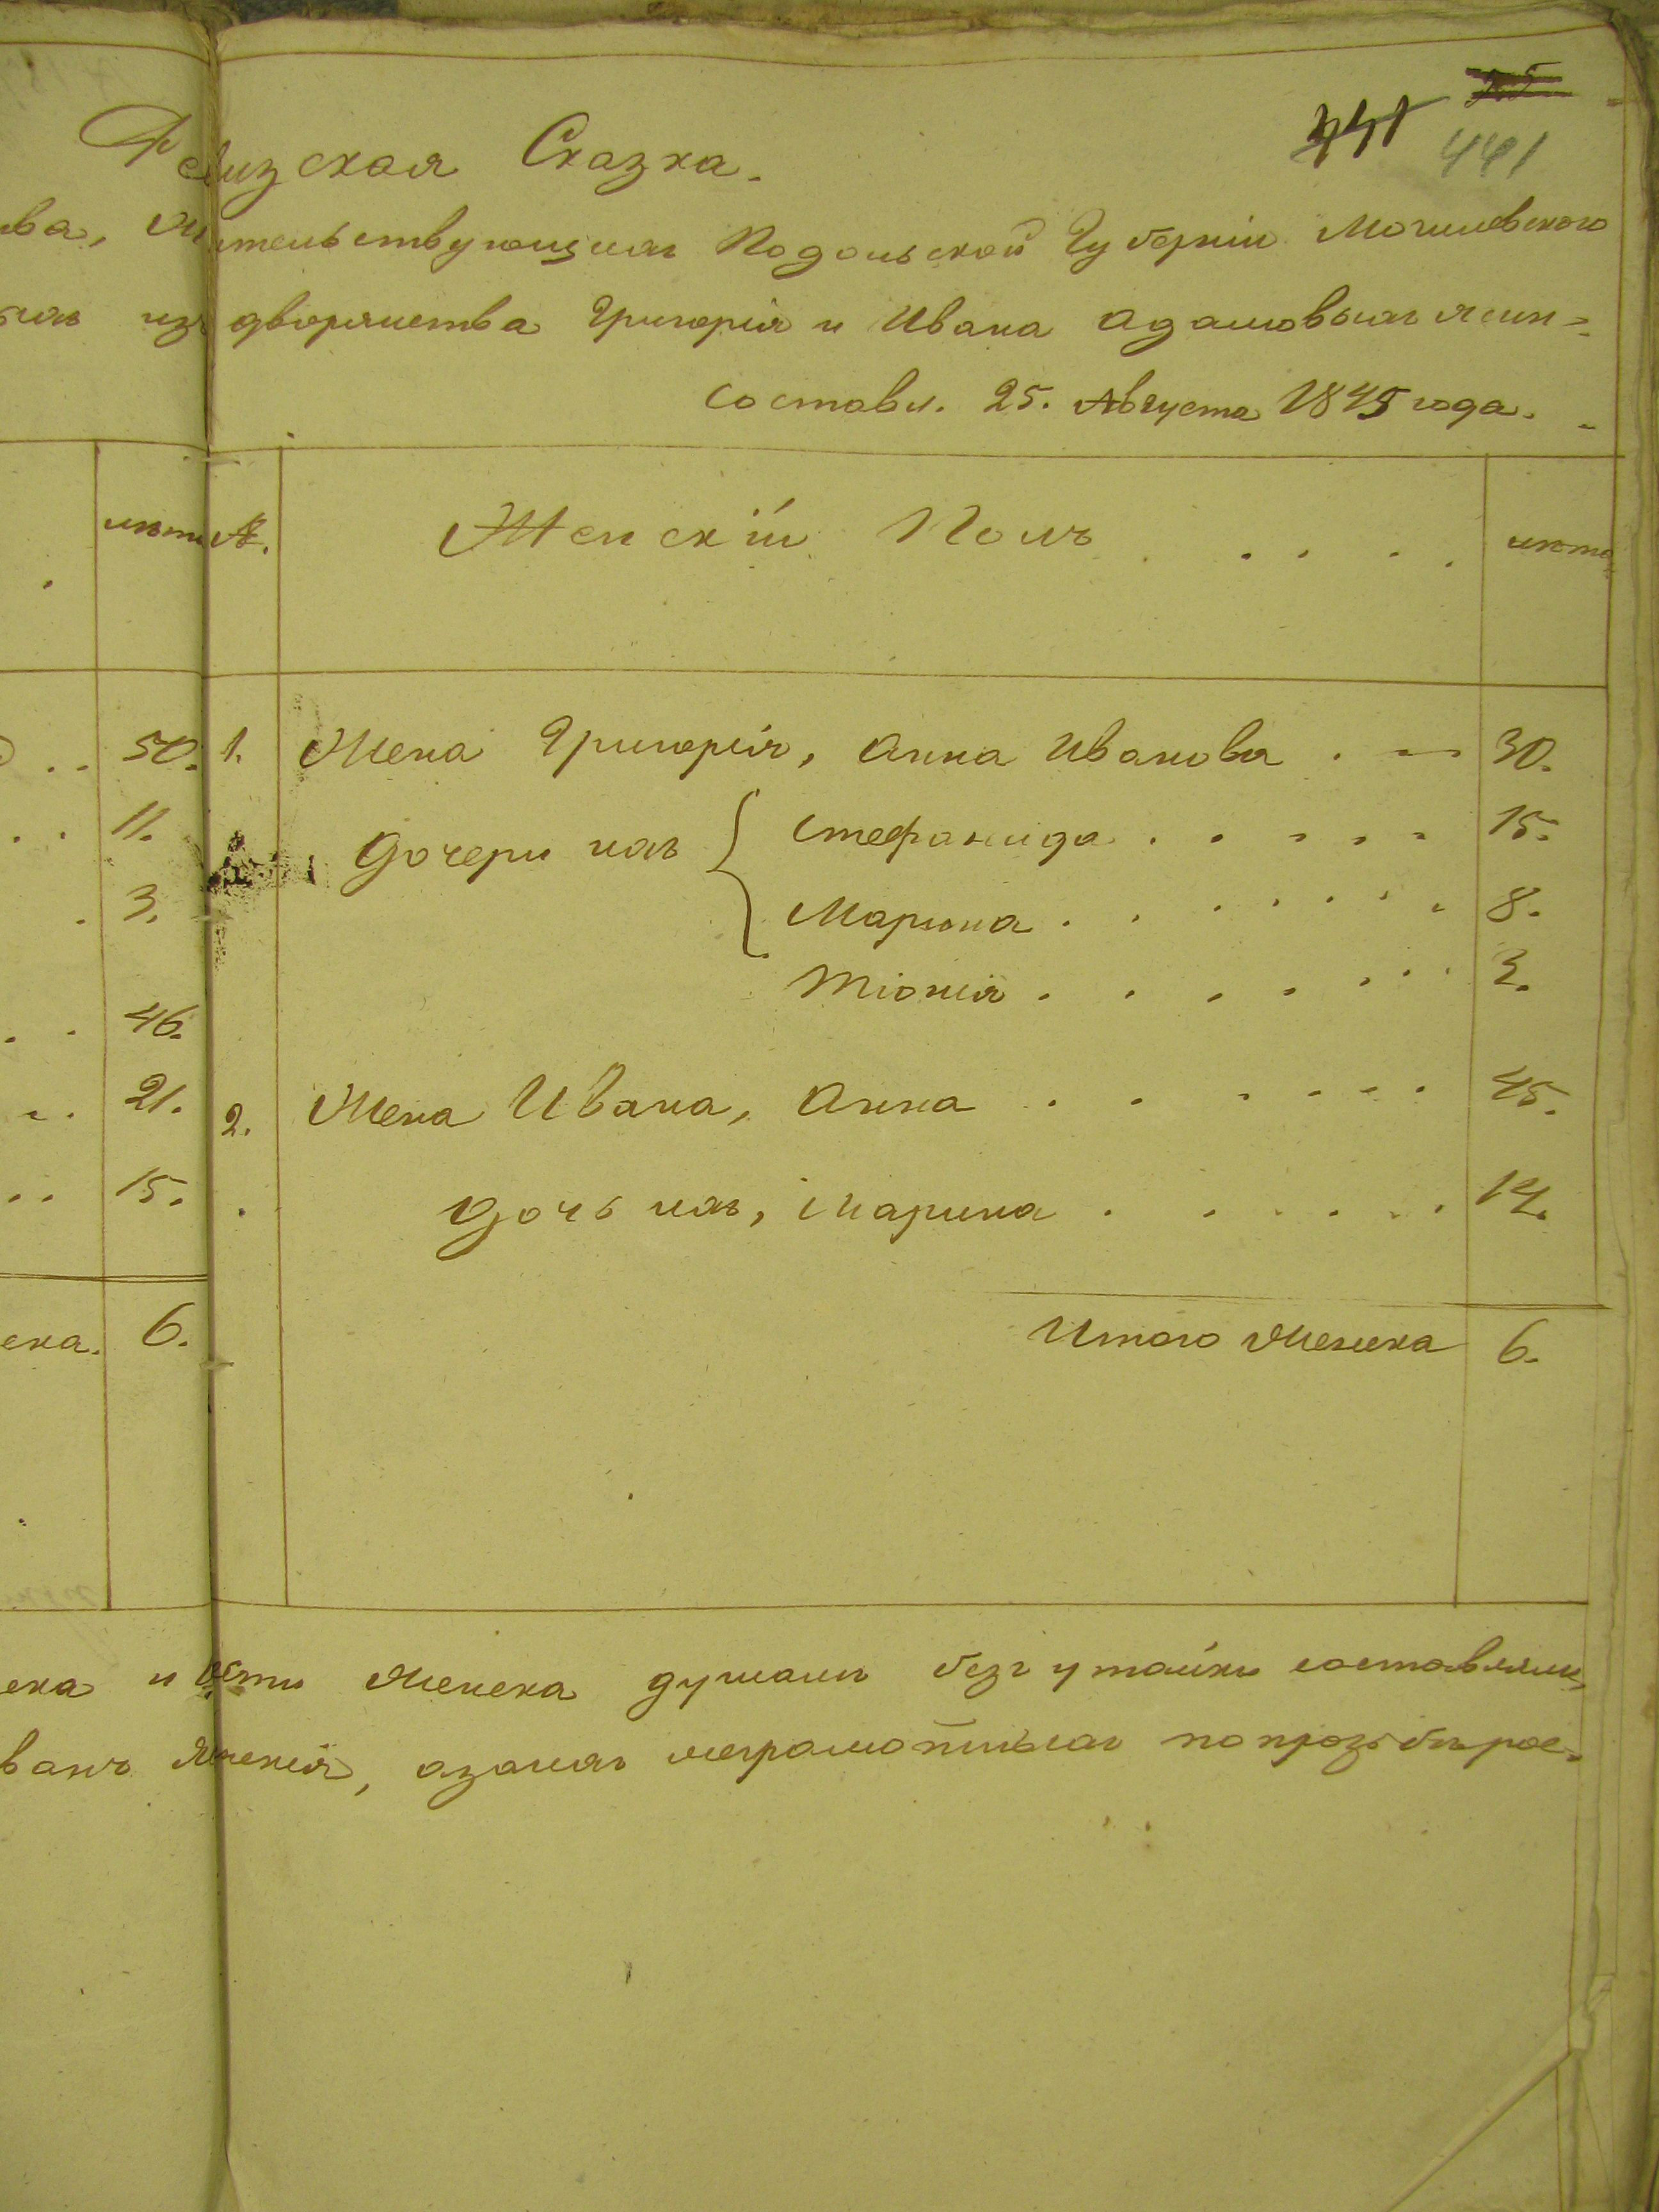 441
441
Ревизская Сказка.
тва, жительствующихъ Подольской Губерніи Могилевского
изъ дворянства Григорія и Ивана Адамовыхъ Ясин=
составл. 25. Августа 1845 года.
лѣта №. Женскій Полъ . . . . лѣта
50. 1. Жена Григорія, Анна Иванова . 30.
11. Дочери ихъ { Стефанида . . . . . 15.
3. Марьяна . . . . . . . 8.
Тіокля . . . . . . . 3.
46.
21. 2. Жена Ивана, Анна . . . . . . 45.
15. Дочь ихъ, Марина . . . . . . 14.
ска. 6. Итого женска 6.
ска и женска душами безъ утайки составлен,
ванъ, а за ихъ неграмотныхъ по прозьбѣ рос=